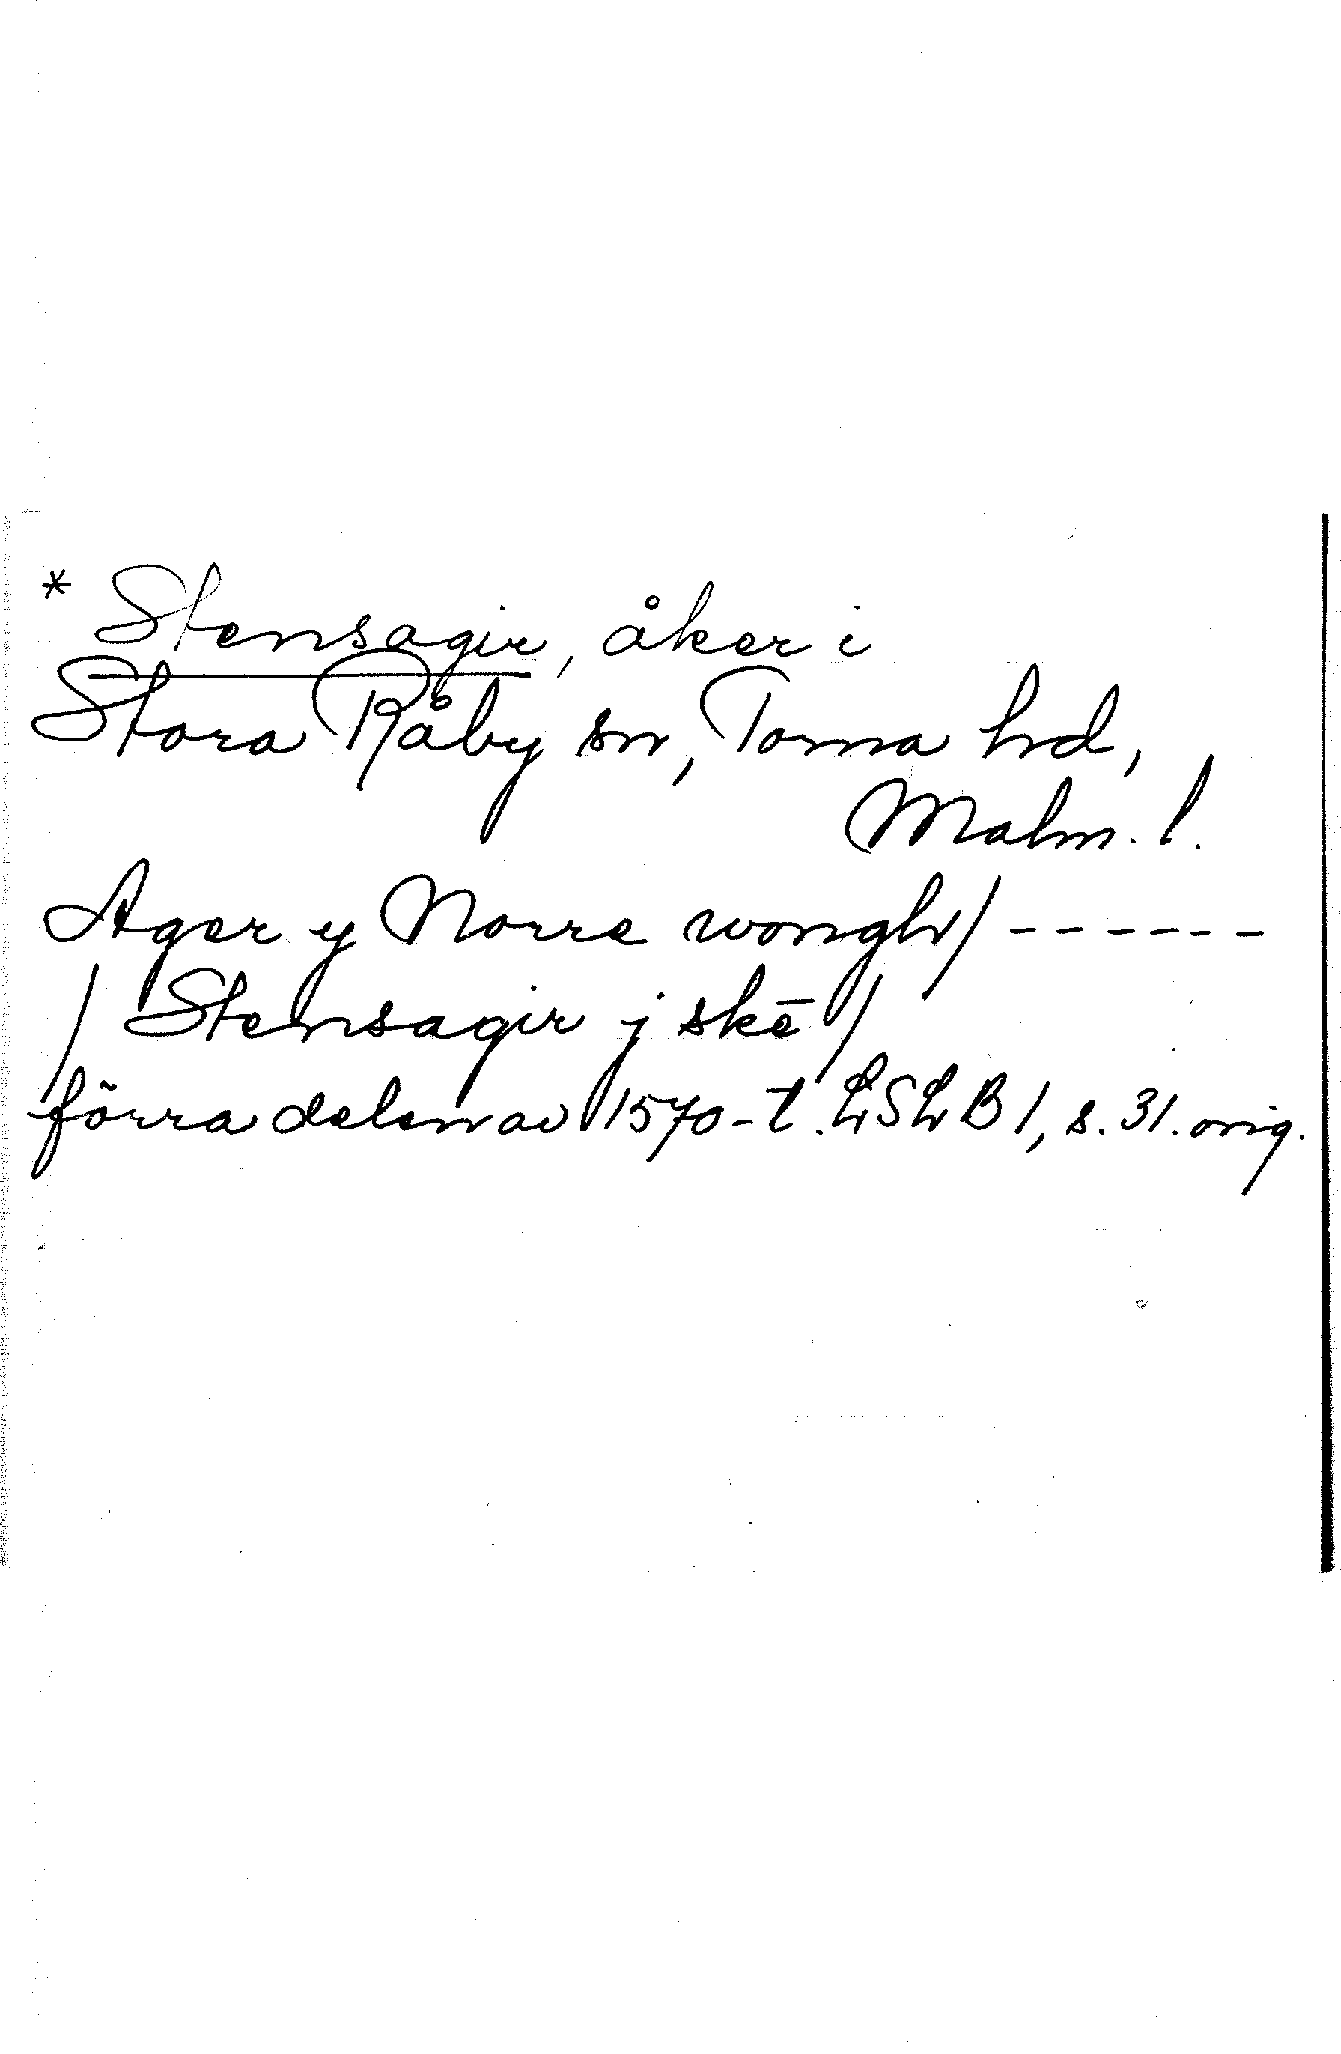 * Stensagir, åker i
Stora Råby sn, Torna hd,
Malm. l.
Ager y Norre wongh/ ------
/ Stensagir j skē /
förra delen av 1570-t. LSLB 1, s. 31. orig.